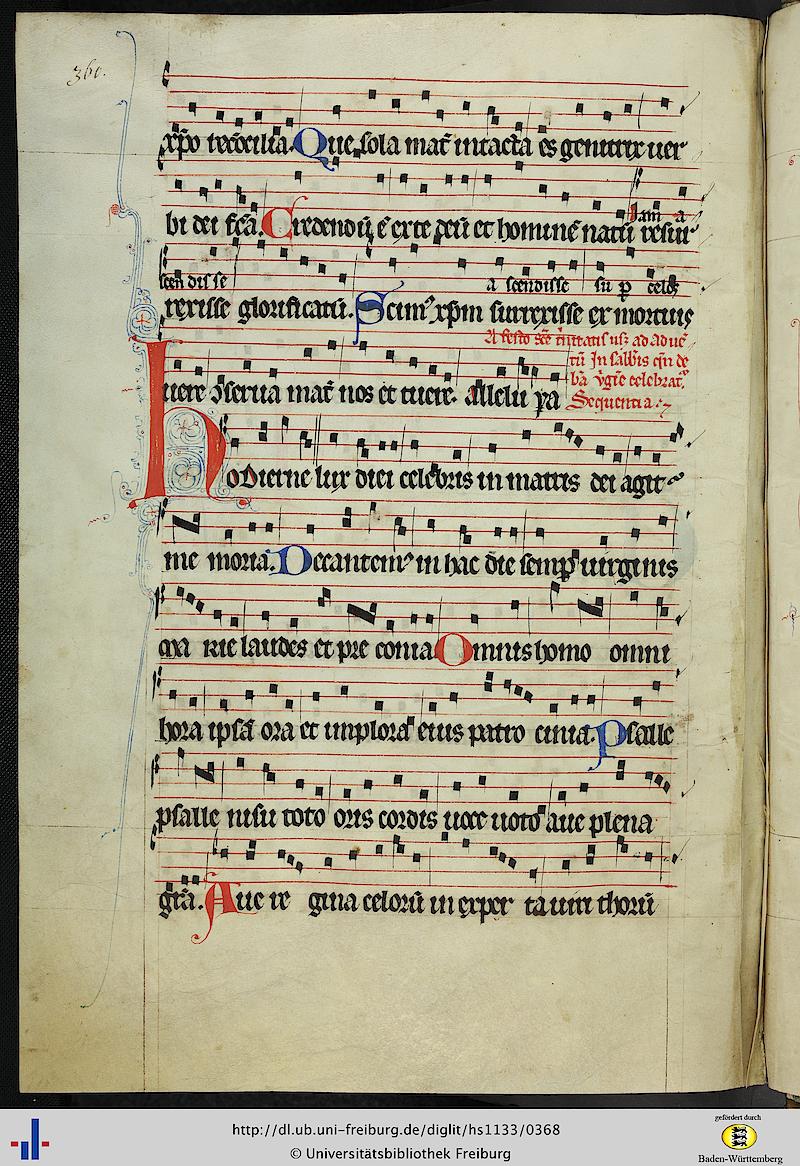 360.
xp̄o reco̅cilia. Que sola mat̄ intacta es genitrix uer
bi dei fc̄a. Credendū ē exte deū et hominē natū resur
Iam a
scendisse ascendisse sup celos
rexisse glorificatū. Scimꝰ xp̄m surrexisse ex mortuis
A festo sc̄e t̄nitatis usqꝫ ad aduē
tū In sabb̄is qn̄ de
b̄a v̄gīe celebrat̄.
Sequentia.
tuere ꝯserua mat̄ nos et tuere. Alleluya
Hodierne lux diei celebris in matris dei agit
memoria. Decantemꝰ in hac die semꝑ uirginis
Marie laudes et preconia. Omnis homo omni
hora ipsā ora et implora eius patrocinia. Psalle
psalle nisu toto oris cordis uoce uoto aue plena
gr̄a. Aue regina celorū inexperta uiri thorū
http://dl.ub.uni-freiburg.de/diglit/hs1133/0368
© Universitätsbibliothek Freiburg
gefördert durch
Baden-Württemberg